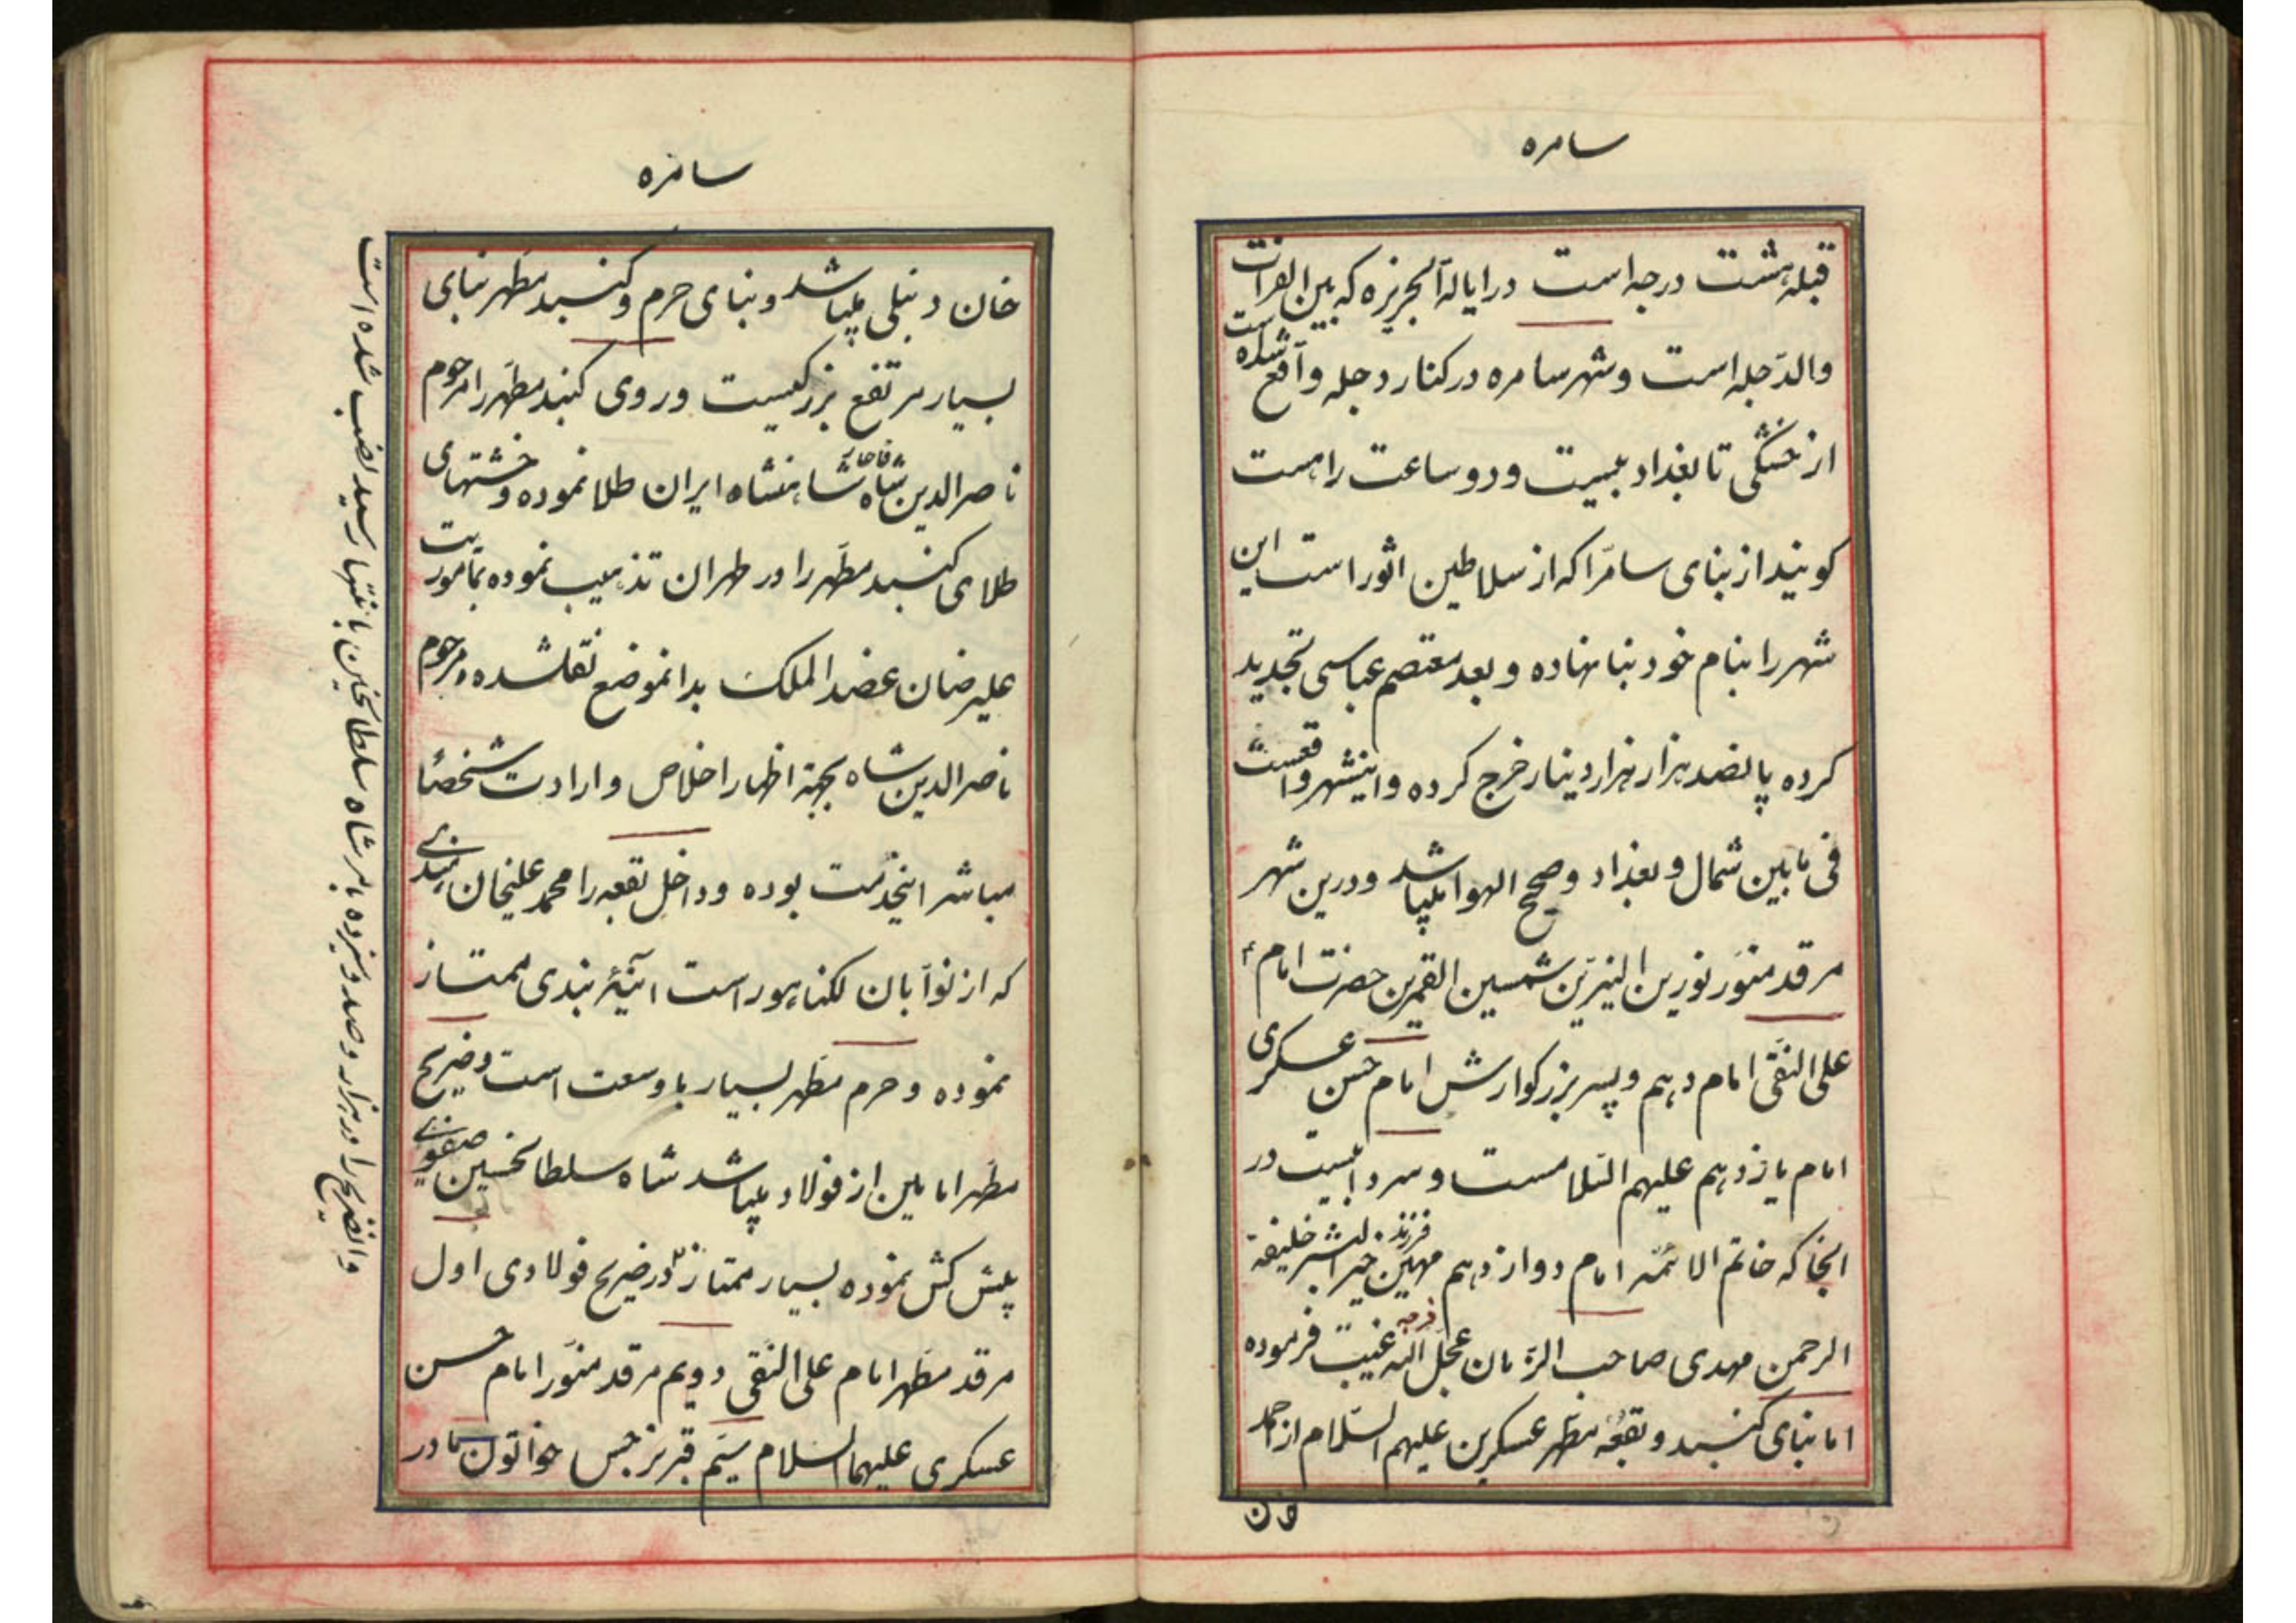 سامره
قبله هشت درجه است در ایالة الجزیره که بین الفرات
والدّجله است و شهر سامره در کنار دجله واقع شده است
از خشکی تا بغداد بیست و دو ساعت راهست
کویند از بنای سامرّا که از سلاطین اثور است این
شهر را بنام خود بنا نهاده و بعد معتصم عباسی تجدید
کرده پانصد هزار هزار دینار خرج کرده و اینشهر واقعست
فی مابین شمال و بغداد و صحیح الهوا میباشد و درین شهر
مرقد منوّر نورین النیرین شمسین القمرین حضرت امام
علی النّقی امام دهم و پسر بزرکوارش امام حسن عسکری
امام یازدهم علیهم السّلامست و سردابیست در
انجا که خاتم الائمّه امام دوازدهم مهین فرزند خیر البشر خلیفة
الرحمن مهدی صاحب الزّمان عجّل اللّه فرجه غیبت فرموده
اما بنای کنبد و بقعهٔ مطهر عسکرین علیهم السّلام از احمد
خان
سامره
خان دنبلی میباشد و بنای حرم و کنبد مطهر بنای
بسیار مرتفع بزرکیست و روی کنبد مطهر را مرحوم
ناصر الدین شاه قاجار شاهنشاه ایران طلا نموده و خشتهای
طلای کنبد مطهر را در طهران تذهیب نموده بمأموریت
علیرضاخان عضد الملک بدانموضع نقلشده و مرحوم
ناصر الدین شاه بجهة اظهار اخلاص و ارادت شخصًا
مباشر اینخدمت بوده و داخل بقعه را محمد علیخان هندی
که از نوّابان لکناهور است آئینهٔ بندی ممتاز
نموده و حرم مطهر بسیار با وسعت است و ضریح
مطهر امامین از فولاد میباشد شاه سلطانحسین صفوی
پیش کش نموده بسیار ممتاز در ضریح فولادی اول
مرقد مطهر امام علی النّقی دویم مرقد منوّر امام حسن
عسکری علیهما السّلام سیّم قبر نرجس خواتون مادر
و انضریح را در هزار و صد و سیزده بامر شاه سلطانحسین بانتها رسید نصب شده است